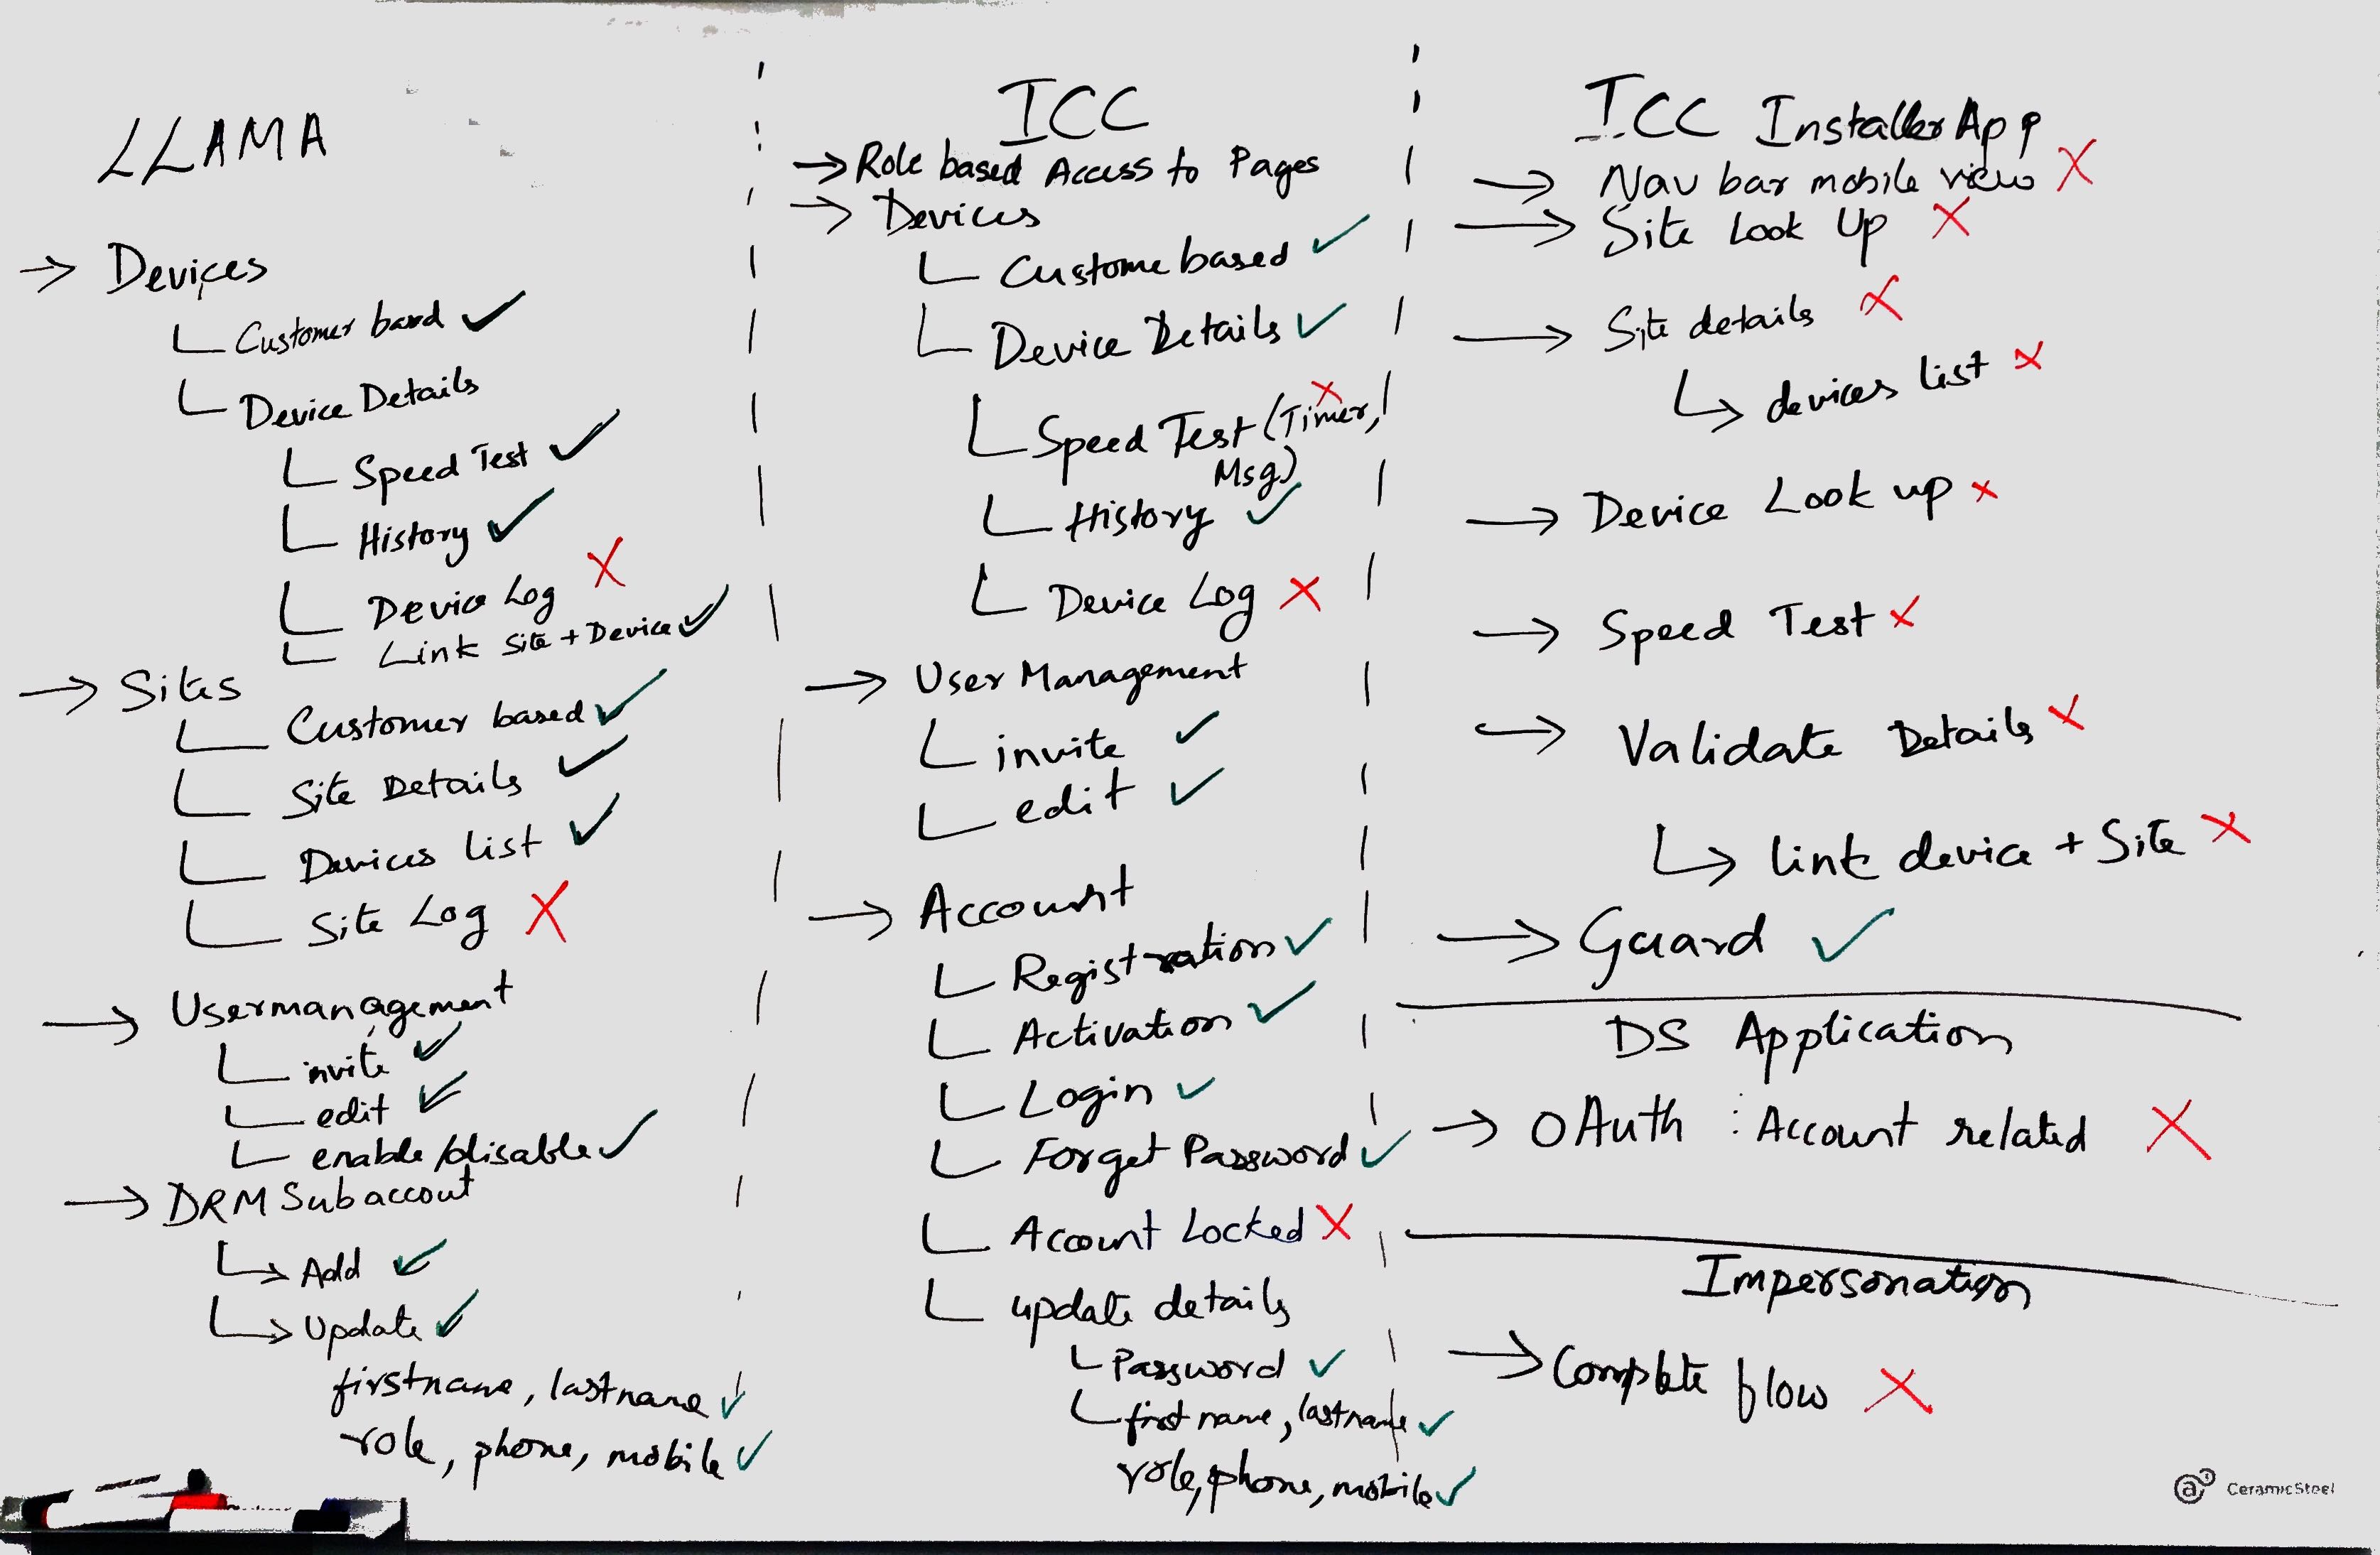 LLAMA
→ Devices
Customer based ✓
Device Details
Speed Test ✓
History ✓
Device Log ✗
Link Site + Device ✓
→ Sites
Customer based ✓
Site Details ✓
Devices List ✓
Site Log ✗
→ Usermanagement
invite ✓
edit ✓
enable/disable ✓
→ DRM Subaccout
↳ Add ✓
↳ Update ✓
firstname, lastname ✓
role, phone, mobile ✓
ICC
→ Role based Access to Pages
→ Devices
Custome based ✓
Device Details ✓
Speed Test (Timer, ✗
Msg)
History ✓
Device Log ✗
→ User Management
invite ✓
edit ✓
→ Account
Registration ✓
Activation ✓
Login ✓
Forget Password ✓
Account Locked ✗
update details
Password ✓
first name, lastname ✓
role, phone, mobile ✓
ICC Installer App
→ Nav bar mobile view ✗
→ Site Look Up ✗
→ Site details ✗
↳ devices list ✗
→ Device Look up ✗
→ Speed Test ✗
→ Validate Details ✗
↳ link device + Site ✗
→ Guard ✓
DS Application
→ OAuth : Account related ✗
Impersonation
→ Complete flow ✗
CeramicSteel